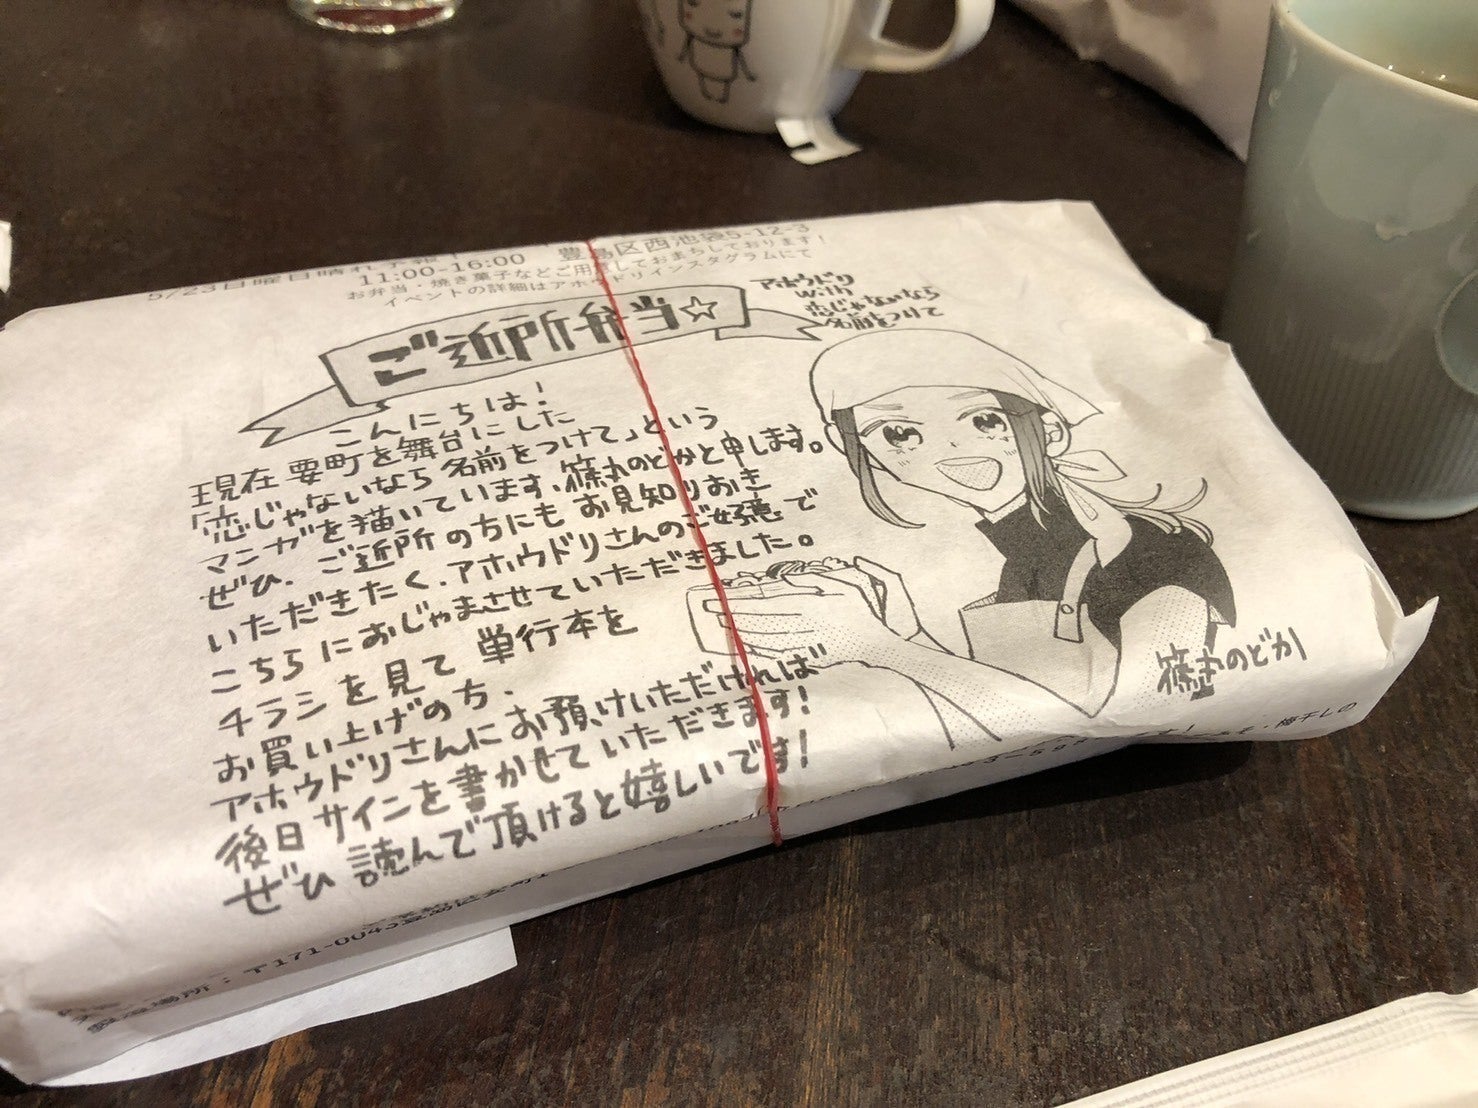 5/23日曜日晴れ予報！
11:00-16:00 豊島区西池袋5-12-3
お弁当・焼き菓子などご用意しておまちしております！
イベントの詳細はアホウドリインスタグラムにて
ご近所弁当☆
アホウドリ
with
恋じゃないなら
名前をつけて
こんにちは！
現在 要町を舞台にした
「恋じゃないなら 名前をつけて」という
マンガを描いています、篠丸のどかと申します。
ぜひ、ご近所の方にもお見知りおき
いただきたく、アホウドリさんのご好意で
こちらにおじゃまさせていただきました。
チラシを見て 単行本を
お買い上げの方、
アホウドリさんにお預けいただければ
後日サインを書かせていただきます！
ぜひ 読んで頂けると嬉しいです！
篠丸のどか
梅干しの
製造場所：〒171-0043豊島区要町1